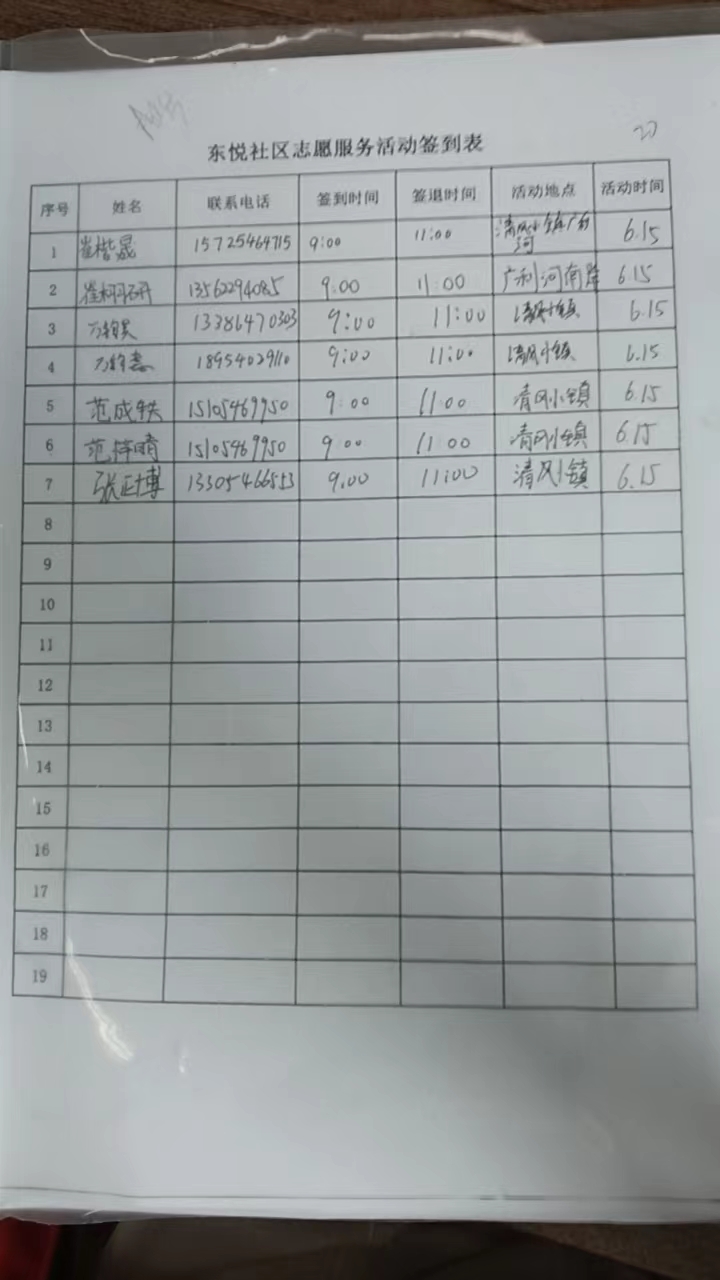 20
东悦社区志愿服务活动签到表
序号 姓名 联系电话 签到时间 签退时间 活动地点 活动时间
1 崔楷晟 15725464715 9:00 11:00 清风小镇广利河 6.15
2 崔栩研 13562294085 9:00 11:00 广利河南岸 6.15
3 13386470303 9:00 11:00 清风小镇 6.15
4 18954029110 9:00 11:00 清风小镇 6.15
5 范成轶 15105469950 9:00 11:00 清风小镇 6.15
6 15105469950 9:00 11:00 清风小镇 6.15
7 张正博 13305466553 9:00 11:00 清风小镇 6.15
8
9
10
11
12
13
14
15
16
17
18
19